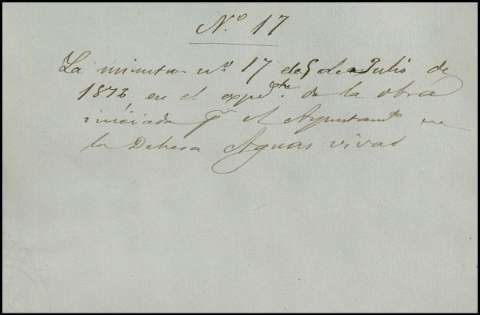 N.º 17
La minuta n.º 17 de 5 de Julio de
1873 en el exped.te de la obra
iniciada p.r el Ayuntam.to en
la Dehesa Aguas vivas